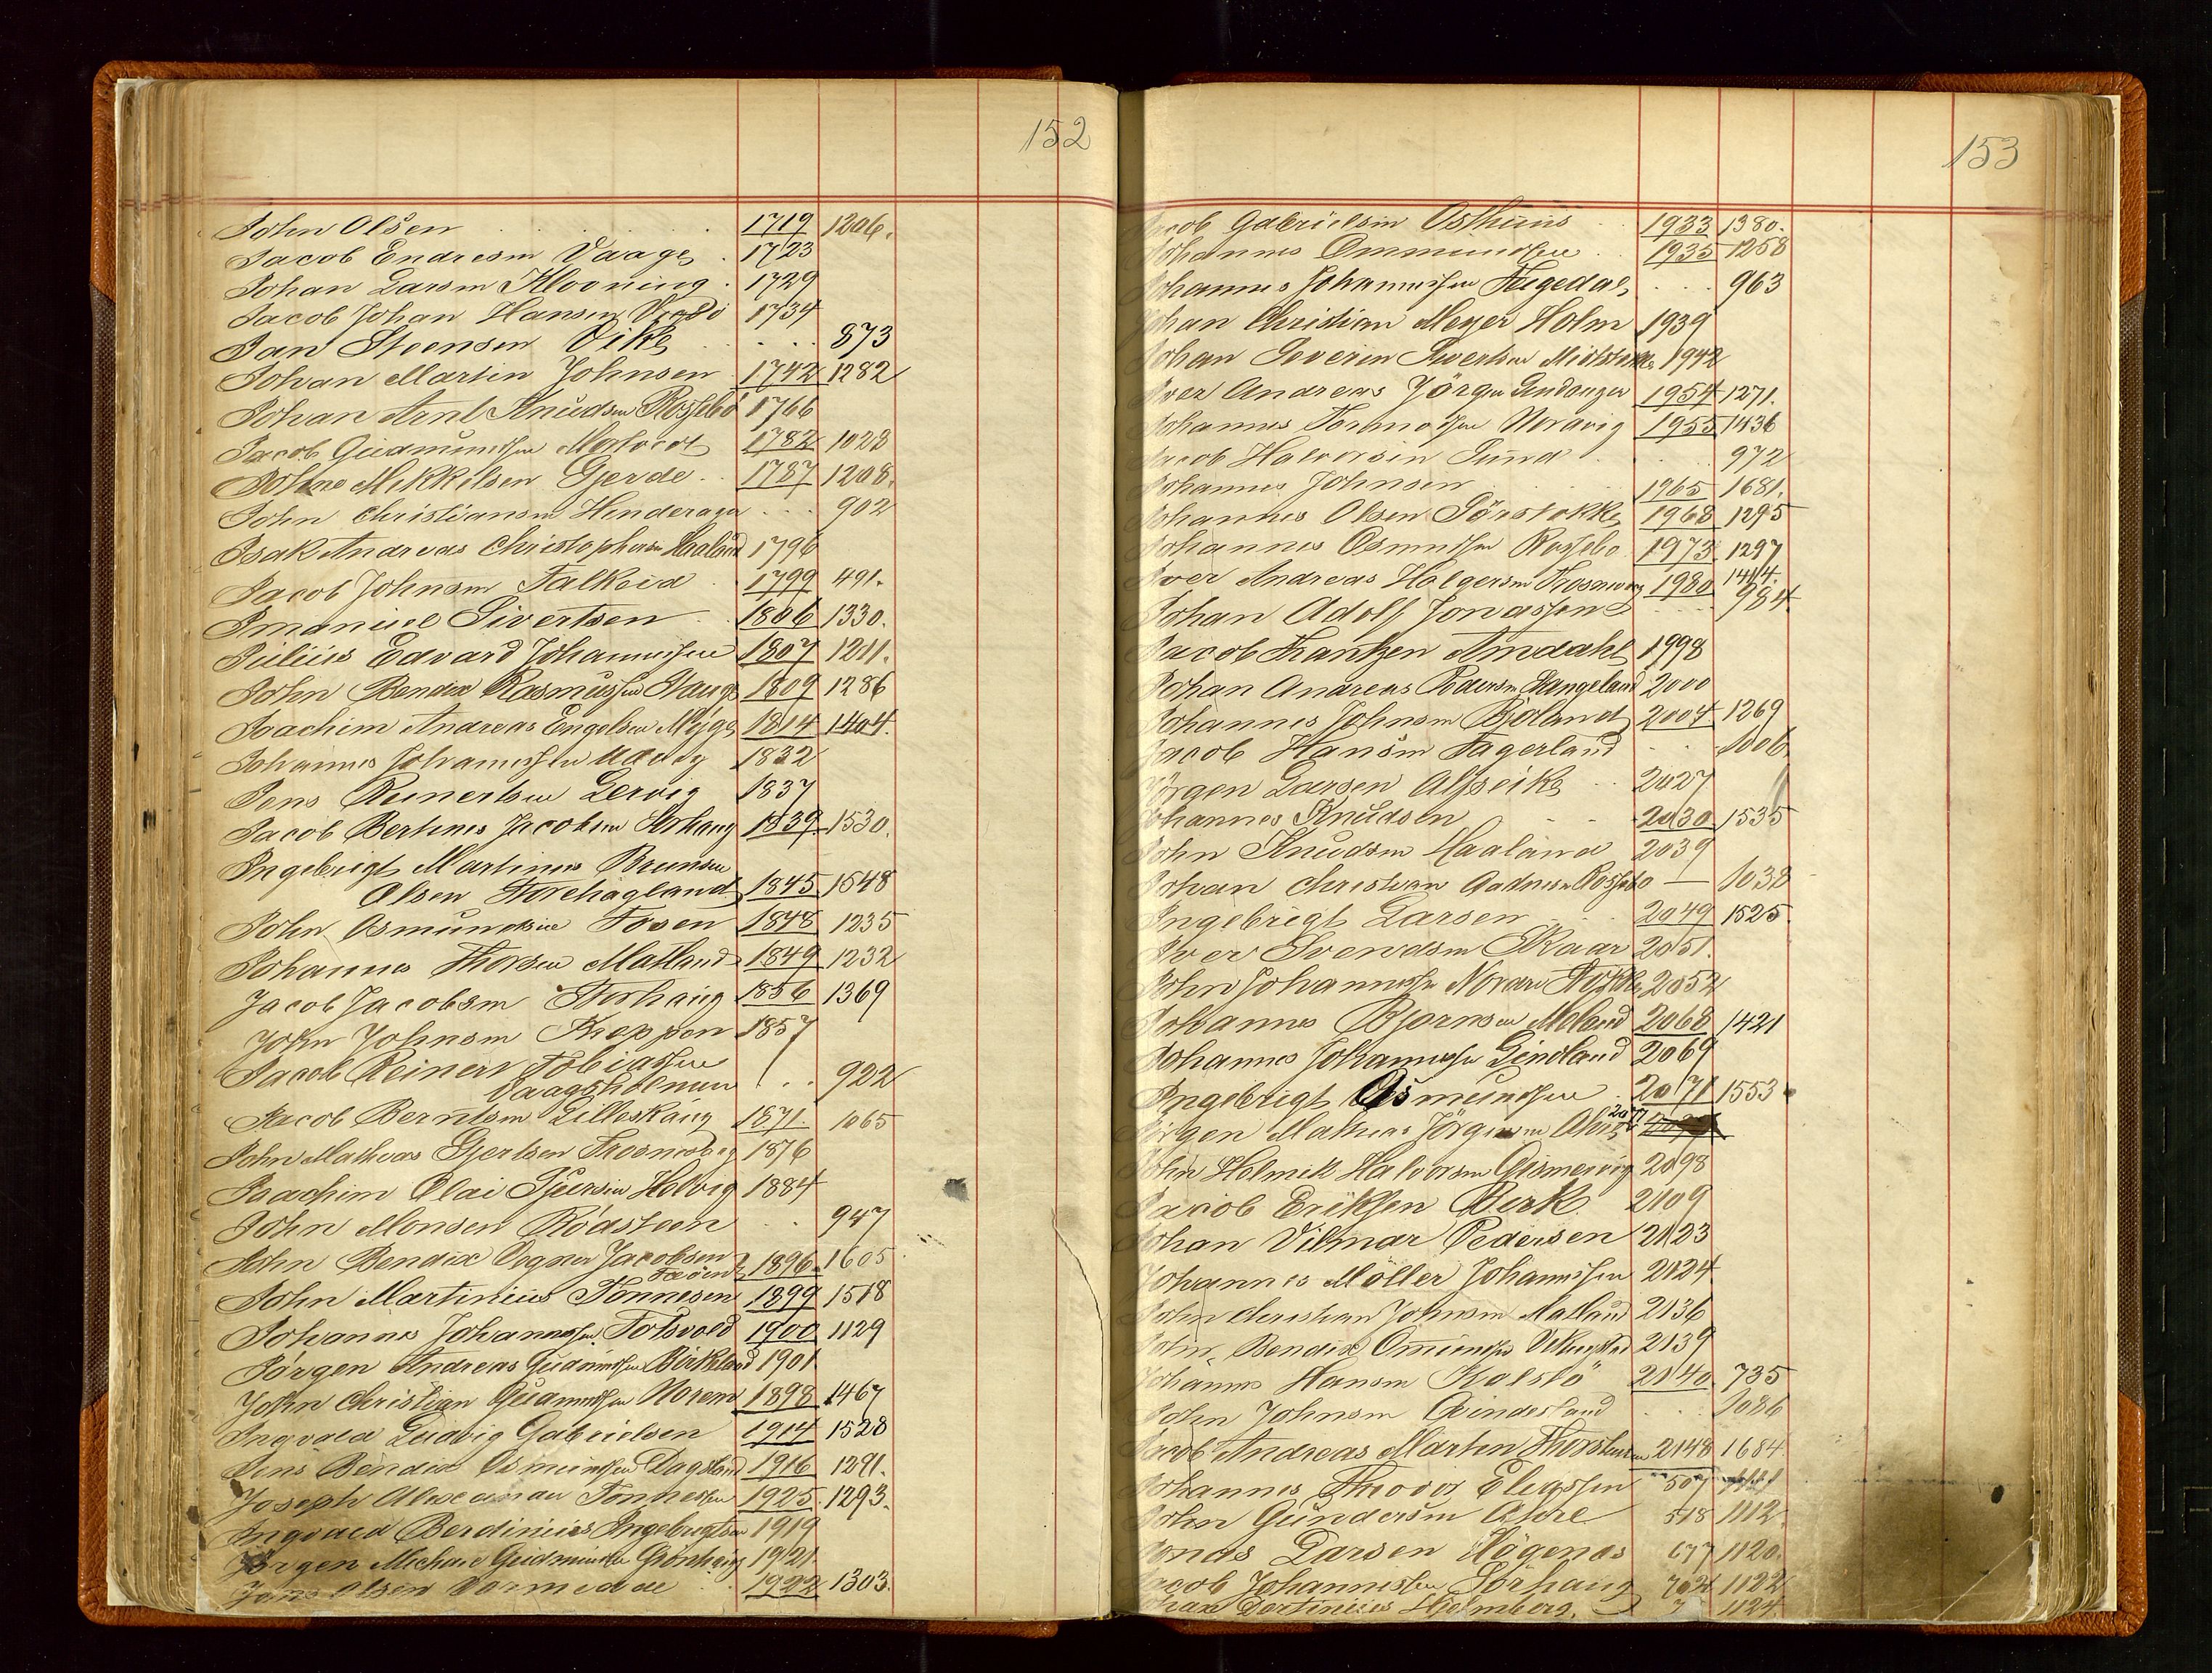 152
John Olsen 1719 1206.
Jacob Endresen Vaage 1723
Johan Larsen Klovning 1729
Jacob Johan Hansen 1734
Jan Steensen Vike 873
Johan Martin Johnsen 1742 1282
Johan Arnt Knudsen Rossebö 1766
Jacob Gudmundsen 1782 1028
Mikkelsen Gjerde 1787 1208.
John Christiansen Hinderager 902
Isak Andreas Christophersen Haaland 1796
Jacob Johnsen Falkeid 1799 491.
Imanuel Sivertsen 1806 1330.
Julius Edvard Johannessen 1807 1211.
John Bendix Rasmussen Hauge 1809 1286
Joachim Andreas Engelsen 1814 1404.
Johannes Johannessen 1832
Jens Reinertsen Lervig 1837
Jacob Bertines Jacobsen Storhaug 1839 1530.
Ingebrigt Martines
Olsen Storehagland 1845 1548
John Osmundsen Tosen 1848 1235
Johannes Thorsen Matland 1849 1232
Jacob Jacobsen Storhaug 1856 1369
John Johnsen 1857
Jacob Reinert Tobiassen
Vaagsholmen 922
Jacob Berntsen Lilleskaug 1871. 1065
John Mathias Gjertsen Trosnavåg 1876
Joachim Olai Helvig 1884
John Monsen Rödsteen 947
John Bendix Vogner Jacobsen
1896. 1605
John Martinius Tönnesen 1899 1518
Johannes Johannessen Totsvold 1900 1129
Jörgen Andreas Gudmundsen Birkeland 1901
John Christian Gudmundsen Norem 1898 1467
Ingvald Ludvig Gabrielsen 1914 1528
Jens Bendix Osmundsen Dagsland 1916 1291.
Joseph Alexander Tönnessen 1925. 1293.
Ingvald Berdinius Ingebrigtsen 1919
Jörgen Michael Gudmundsen Grönhaug 1921.
Jens Olsen Vormedde 1922 1303.
153
Jacob Gabrielsen Osthuus 1933 1380.
Johannes Ommundsen 1935 1258
Johannes Johannessen 963
Johan Christian Meyer Holm 1939
Johan Severin Sivertsen 1942
Iver Andreas Jörgen 1954 1271.
Johannes Tormodsen Noravig 1955 1436
Jacob Halvorsen Sund 972
Johannes Johnsen 1965 1681.
Johannes Olsen Sörstokke 1968 1295
Johannes Osmundsen Rossebö 1973. 1297
Iver Andreas Holgersen Trosnavåg 1980 1414.
Johan Adolf Jonassen 984
Jacob Frantzen Amdahl 1998
Johan Andreas Pedersen Langeland 2000
Johannes Johnsen Bjoland 2004 1269
Jacob Hansen Fagerland 1006
Jörgen Larsen Alfseike 2027
Johannes Knudsen 2030 1535
John Knudsen Haaland 2039
Johan Christian Aadnesen Rossebö — 1038
Ingebrigt Larsen 2049 1525.
Iver Svendsen Skaar 2051.
John Johannessen Nordre Stokke 2052
Johannes Bjornsen Meland 2068 1421
Johannes Johannessen Lindland 2069
Ingebrigt Osmundsen 2071 1553
Jörgen Mathias Jörgensen
John Holmek Halvorsen Gismervig 2098
Jacob Eriksen Birk 2109
Johan Vilmar Pedersen 2123
Johannes Möller Johannessen 2124
John Christian Johnsen Matland 2136
John Bendix Omundsen 2139
Johannes Hansen Kolstö 2140 735
John Johnsen Qvindesland 1086
Jacob Andreas Martin Thorstensen 2148 1684.
Johannes Theodor Eliassen 507
John Gundersen 518 1112.
Jonas Larsen Högenæs 677 1120.
Jacob Johannessen Sörhaug 1122
Johan Hjelmberg. 1124.